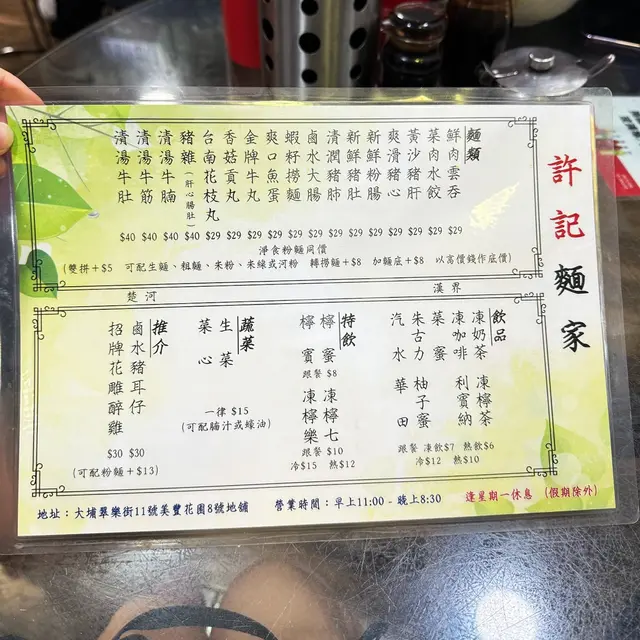 許記麵家
麵類
鮮肉雲吞
菜肉水餃
黃沙豬肝
爽滑豬心
新鮮粉腸
新鮮豬肚
清潤豬肺
鹵水大腸
蝦籽撈麵
爽口魚蛋
金牌牛丸
香菇貢丸
台南花枝丸
豬雜(肝心腸肚)
清湯牛腩
清湯牛筋
清湯牛肚
$40 $40 $40 $40 $29 $29 $29 $29 $29 $29 $29 $29 $29 $29 $29 $29 $29
淨食粉麵同價
(雙拼+$5 可配生麵、粗麵、米粉、米線或河粉 轉撈麵+$8 加麵底+$8 以高價錢作底價)
楚河
漢界
飲品
凍奶茶 凍檸茶
凍咖啡 利賓納
菜蜜
朱古力 柚子蜜
汽水 華田
跟餐 凍飲$7 熱飲$6
冷$12 熱$10
特飲
檸蜜
檸賓
跟餐 $8
凍檸七
凍檸樂
跟餐 $10
冷$15 熱$12
蔬菜
生菜
菜心
一律 $15
(可配腩汁或蠔油)
推介
鹵水豬耳仔
招牌花雕醉雞
$30 $30
(可配粉麵+$13)
地址：大埔翠樂街11號美豐花園8號地舖
營業時間：早上11:00 - 晚上8:30
逢星期一休息 (假期除外)